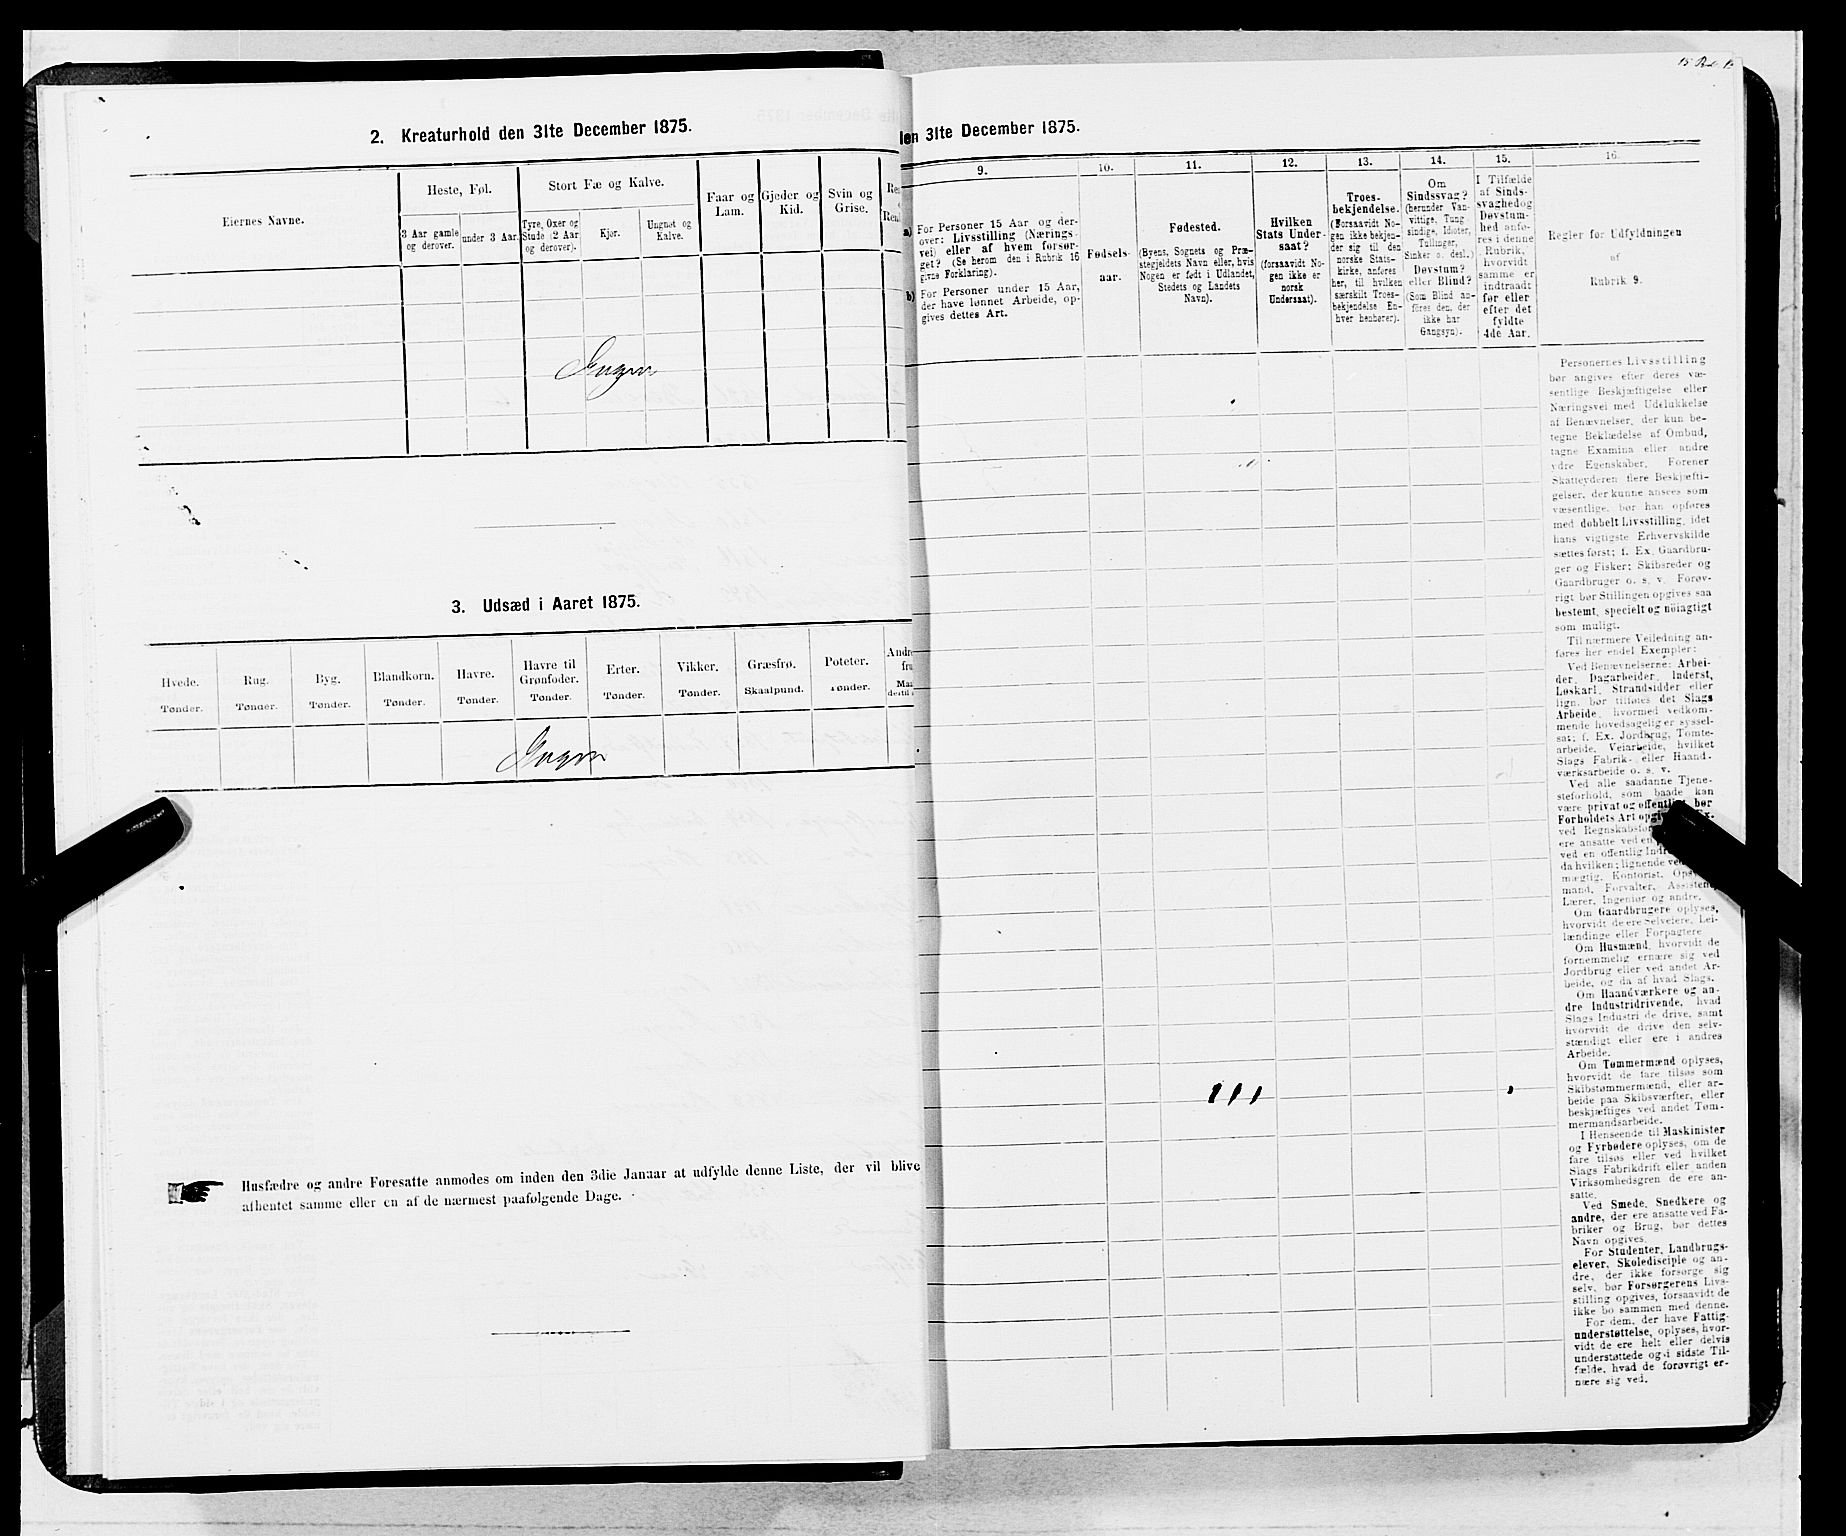 2. Kreaturhold den 31te December 1875.
Eiernes Navne.
Heste, Føl.
3 Aar gamle
og derover.
under 3 Aar.
Stort Fæ og Kalve.
Tyre, Oxer og
Stude (2 Aar
og derover).
Kjør.
Ungnøt og
Kalve.
Faar og
Lam.
Gjeder og
Kid.
Svin og
Grise.
Ingen
3. Udsæd i Aaret 1875.
Hvede.
Tønder.
Rug.
Tønder.
Byg.
Tønder.
Blandkorn.
Tønder.
Havre.
Tønder.
Havre til
Grønfoder.
Tønder.
Erter.
Tønder.
Vikker.
Tønder.
Græsfrø.
Skaalpund.
Poteter.
Tønder.
Andre
Ingen
Husfædre og andre Foresatte anmodes om inden den 3die Januar at udfylde denne Liste, der vil blive
afhentet samme eller en af de nærmest paafølgende Dage.
den 31te December 1875.
9.
a) For Personer 15 Aar og der-
over: Livsstilling (Nærings-
vei) eller af hvem forsør-
get? (Se herom den i Rubrik 16
givne Forklaring).
b) For Personer under 15 Aar,
der have lønnet Arbeide, op-
gives dettes Art.
10.
Fødsels-
aar.
11.
Fødested.
(Byens, Sognets og Præ-
stegjeldets Navn eller, hvis
Nogen er født i Udlandet,
Stedets og Landets
Navn).
12.
Hvilken
Stats Under-
saat?
(forsaavidt No-
gen ikke er
norsk
Undersaat).
13.
Troes-
bekjendelse.
(Forsaavidt No-
gen ikke bekjen-
der sig til den
norske Stats-
kirke, anføres
her, til hvilken
særskilt Troes-
bekjendelse En-
hver henhører).
14.
Om
Sindssvag?
(herunder Van-
vittige, Tung-
sindige, Idioter,
Tullinger,
Sinker o. desl.)
Døvstum?
eller Blind?
(Som Blind an-
føres den, der
ikke har
Gangsyn).
15.
I Tilfælde
af Sinds-
svaghed og
Døvstum-
hed anfø-
res i denne
Rubrik,
hvorvidt
samme er
indtraadt
før eller
efter det
fyldte
4de Aar.
16.
Regler for Udfyldningen
af
Rubrik 9.
Personernes Livsstilling
bør angives efter deres væ-
sentlige Beskjæftigelse eller
Næringsvei med Udelukkelse
af Benævnelser, der kun be-
tegne Beklædelse af Ombud,
tagne Examina eller andre
ydre Egenskaber. Forener
Skatteyderen flere Beskjæfti-
gelser, der kunne ansees som
væsentlige, bør han opføres
med dobbelt Livsstilling, idet
hans vigtigste Erhvervskilde
sættes først; f. Ex. Gaardbru-
ger og Fisker; Skibsreder og
Gaardbruger o. s. v. Forøv-
rigt bør Stillingen opgives saa
bestemt, specielt og nøiagtigt
som muligt.
Til nærmere Veiledning an-
føres her endel Exempler:
Ved Benævnelserne: Arbei-
der, Dagarbeider, Inderst,
Løskarl, Strandsidder eller
lign. bør tilføies det Slags
Arbeide, hvormed vedkom-
mende hovedsagelig er syssel-
sat; f. Ex. Jordbrug, Tomte-
arbeide, Veiarbeide, hvilket
Slags Fabrik- eller Haand-
værksarbeide o. s. v.
Ved alle saadanne Tjene-
steforhold, som baade kan
være privat og offentligt, bør
Forholdets Art
ved
ere ansatte ved en
ved en offentlig
da hvilken; lignende ved
mægtig, Kontorist,
mand, Forvalter, Assistent,
Lærer, Ingeniør og andre.
Om Gaardbrugere oplyses,
hvorvidt de ere Selveiere, Lei-
lændinge eller Forpagtere
Om Husmænd, hvorvidt de
fornemmelig ernære sig ved
Jordbrug eller ved andet Ar-
beide, og da af hvad Slags.
Om Haandværkere og an-
dre Industridrivende, hvad
Slags Industri de drive, samt
hvorvidt de drive den selv-
stændigt eller ere i andres
Arbeide.
Om Tømmermænd oplyses,
hvorvidt de fare tilsøs som
Skibstømmermænd, eller ar-
beide paa Skibsværfter, eller
beskjæftiges ved andet Tøm-
mermandsarbeide.
I Henseende til Maskinister
og Fyrbødere oplyses, om de
fare tilsøs eller ved hvilket
Slags Fabrikdrift eller anden
Virksomhedsgren de ere an-
satte.
Ved Smede, Snedkere og
andre, der ere ansatte ved Fa-
briker og Brug, bør dettes
Navn opgives.
For Studenter, Landbrugs-
elever, Skoledisciple og an-
dre, der ikke forsørge sig
selv, bør Forsørgerens Livs-
stilling opgives, forsaavidt de
ikke bo sammen med denne.
For dem, der have Fattig-
understøttelse, oplyses, hvor-
vidt de ere helt eller delvis
understøttede og i sidste Til-
fælde, hvad de forøvrigt er-
nære sig ved.